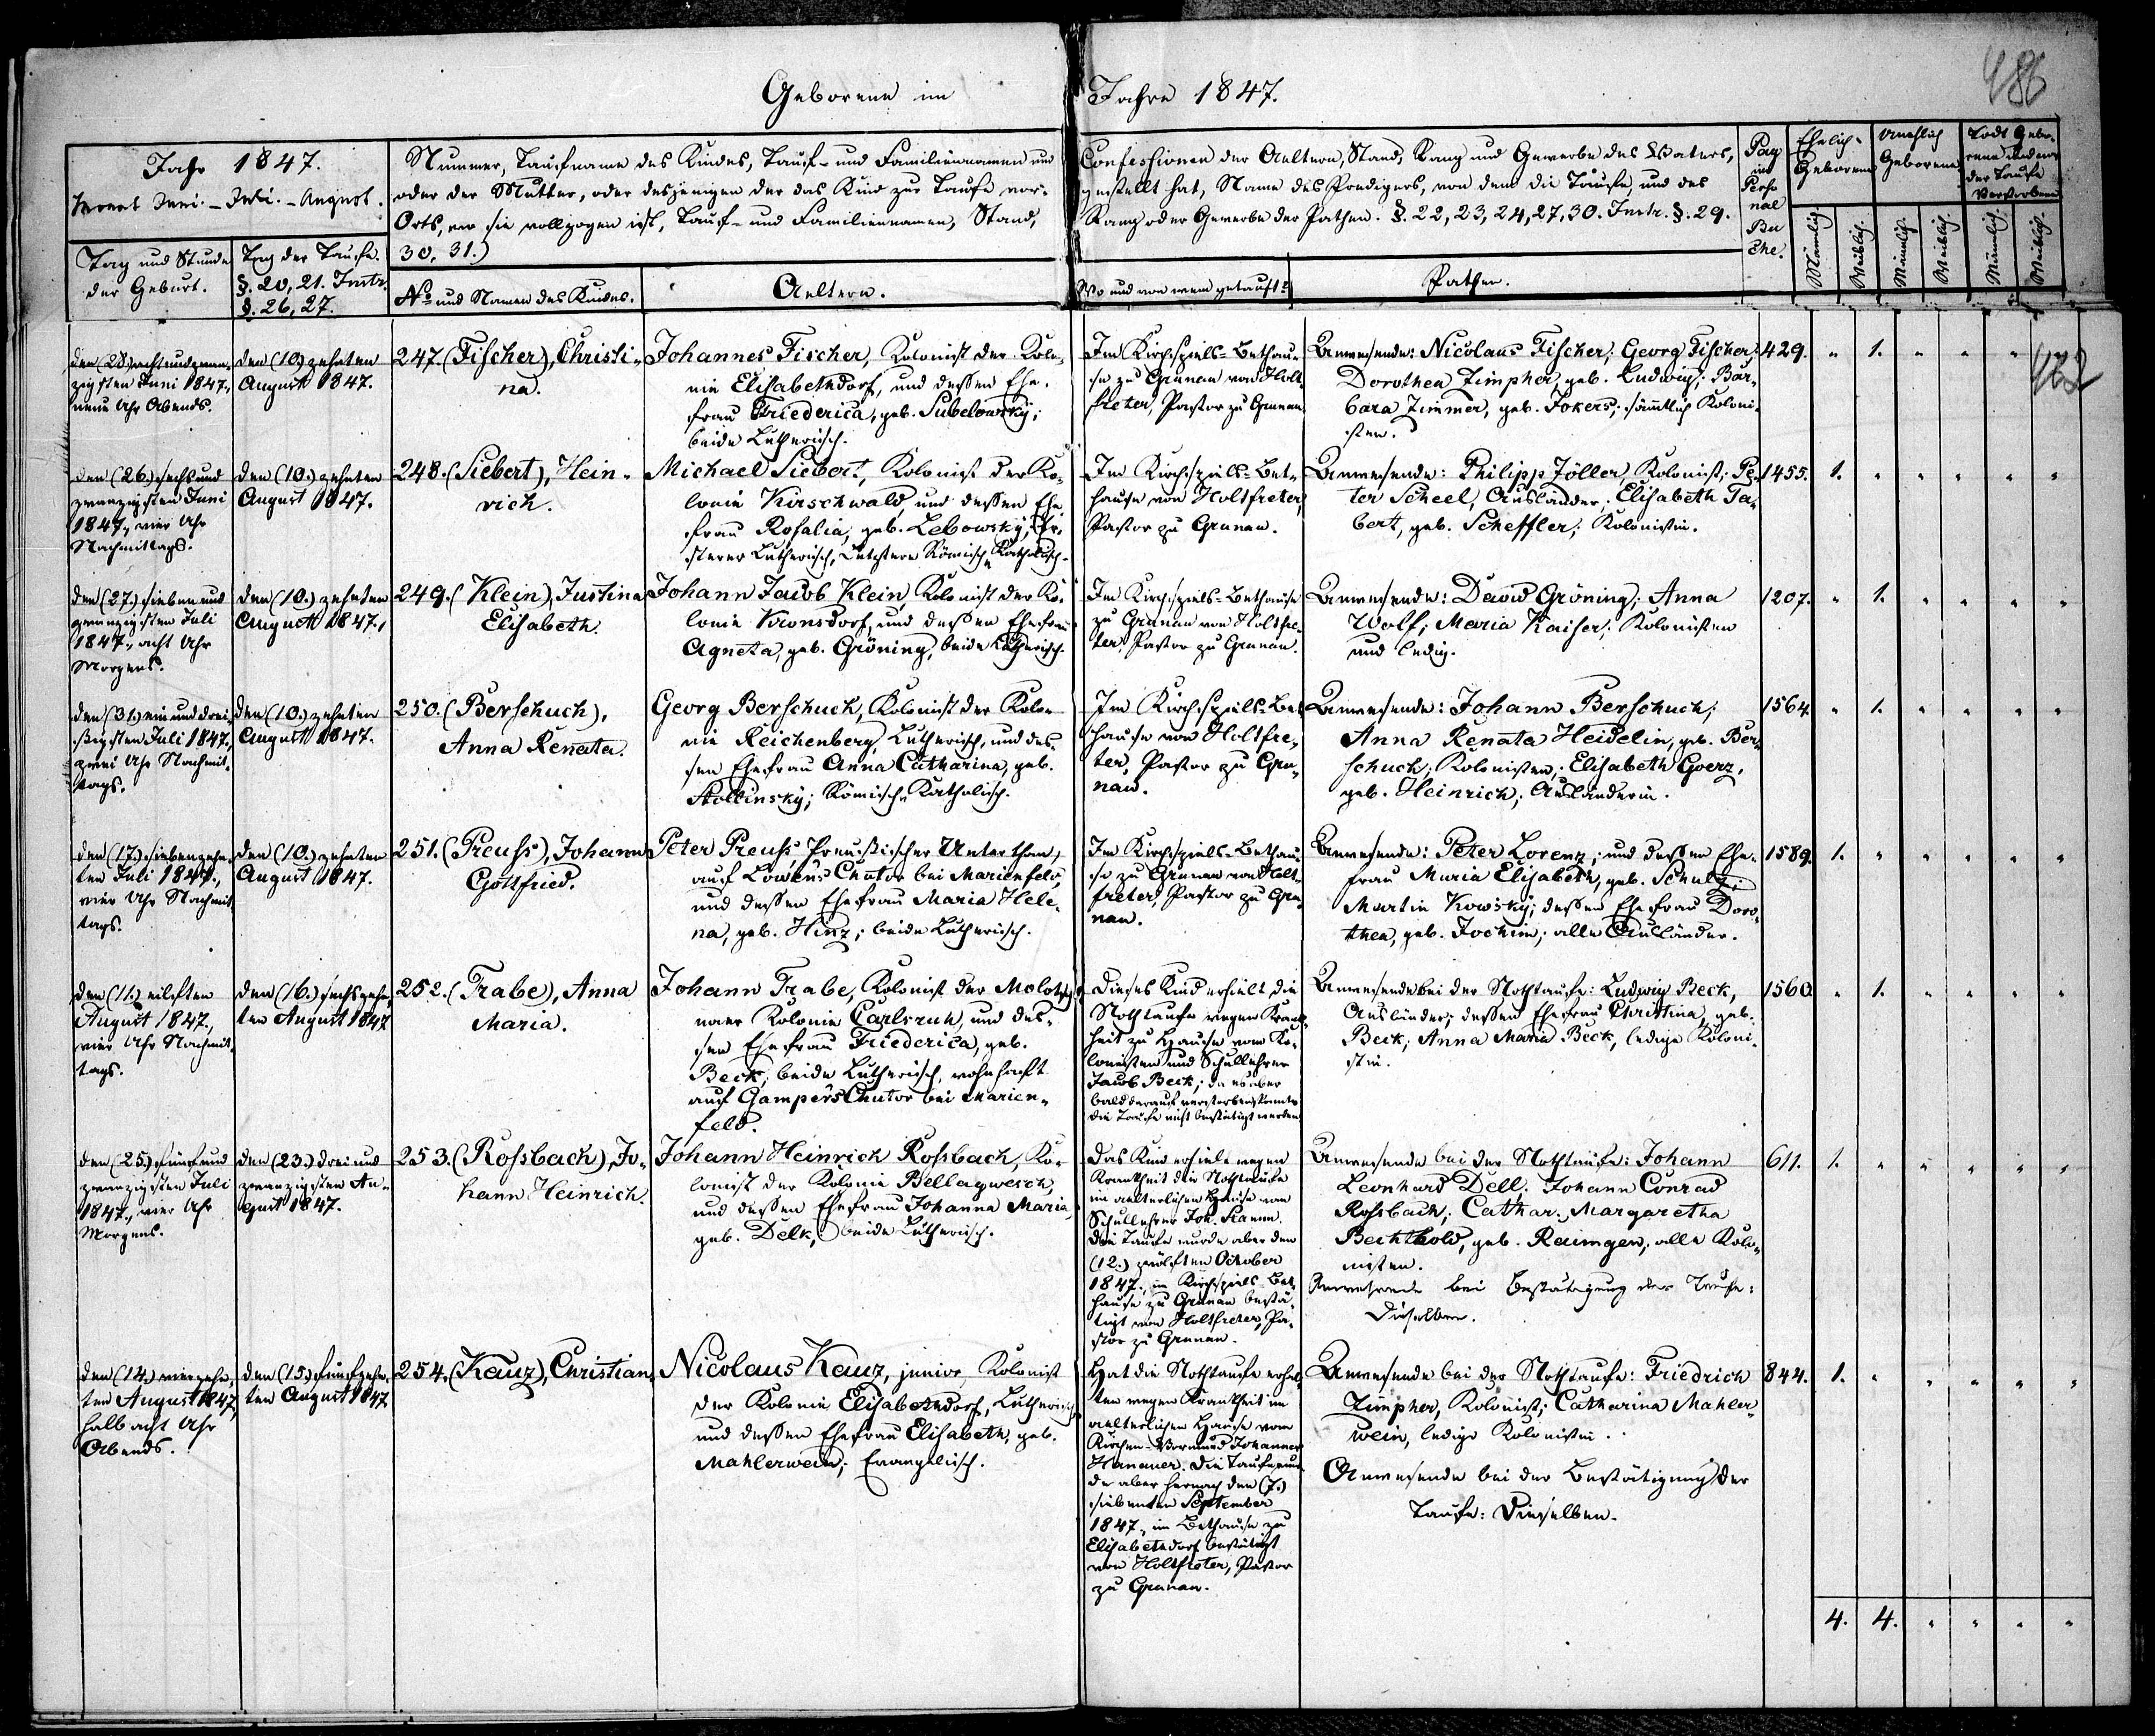 486
Geborene im Jahre 1847.
Jahr 1847.
Monat Juni. - Juli. - August.
Tag und Stunde
der Geburt.
Tag der Taufe.
§. 20, 21. Instr.
§. 26, 27.
Nummer, Taufname des Kindes, Tauf- und Familiennamen und
oder der Mutter, oder desjenigen der das Kind zur Taufe vor-
Orts, wo sie vollzogen ist, Tauf- und Familiennamen, Stand,
30, 31.)
No und Namen des Kindes.
Aeltern.
Confessionen der Aeltern, Stand, Rang und Gewerbe des Vaters,
gestellt hat, Name des Predigers, von dem die Taufe, und des
Rang oder Gewerbe der Pathen. §. 22, 23, 24, 27, 30. Instr. §. 29.
Wo und von wem getauft?
Pathen.
Pag
im
Perso
nal
Bu
che.
Ehelich-
Geborene
Unehlich
Geborene
Todt Gebo-
rene und vor
der Taufe
Verstorbene
Männlich.
Weiblich.
Männlich.
Weiblich.
Männlich.
Weiblich.
den (28) achtundzwan-
zigsten Juni 1847.,
neun Uhr Abends.
den (10.) zehnten
August 1847.
247. (Fischer), Christi-
na.
Johannes Fischer, Kolonist der Kolo-
nie Elisabethdorf, und dessen Ehe-
frau Friederica, geb. Subelowsky;
beide Lutherisch.
Im Kirchspiels-Bethau-
se zu Grunau von Holt-
freter, Pastor zu Grunau.
Anwesende: Nicolaus Fischer; Georg Fischer;
Dorothea Zimpher, geb. Ludwig; Bar-
bara Zimmer, geb. Jokers; sämtlich Koloni-
sten.
429. " 1. " " "
den (26.) sechs und
zwanzigsten Juni
1847., vier Uhr
Nachmittags.
den (10.) zehnten
August 1847.
248. (Siebert), Hein-
rich.
Michael Siebert, Kolonist der Ko-
lonie Kirschwald, und dessen Ehe-
frau Rosalia, geb. Lebowsky; Er-
sterer Lutherisch, Letztere Römisch-Katholisch.
Im Kirchspiels-Bet-
hause von Holtfreter,
Pastor zu Grunau.
Anwesende: Philipp Zöller, Kolonist; Pe-
ter Scheel, Ausländer; Elisabeth Ta-
bert, geb. Scheffler; Kolonistin.
1455. 1. " " " " "
den (27.) sieben und
zwanzigsten Juli
1847., acht Uhr
Morgens.
den (10.) zehnten
August 1847.,
249. (Klein), Justina
Elisabeth.
Johann Jacob Klein, Kolonist der Ko-
lonie Kronsdorf, und dessen Ehefrau
Agneta, geb. Gröning, beide Lutherisch.
Im Kirchspiels-Bethause
zu Grunau von Holtfre-
ter, Pastor zu Grunau.
Anwesende: David Gröning; Anna
Wolf; Maria Kaiser; Kolonisten
und ledig.
1207. " 1. " " " "
den (31.) ein und drei-
ßigsten Juli 1847.,
zwei Uhr Nachmit-
tags.
den (10.) zehnten
August 1847.
250. (Berschuch),
Anna Renata.
Georg Berschuch, Kolonist der Kolo-
nie Reichenberg, Lutherisch, und des-
sen Ehefrau Anna Catharina, geb.
Stollinsky; Römisch-Katholisch.
Im Kirchspiels-Bet-
hause von Holtfre-
ter, Pastor zu Gru-
nau.
Anwesende: Johann Berschuch;
Anna Renata Heidelin, geb. Ber-
schuch; Kolonisten; Elisabeth Goerz,
geb. Heinrich; Ausländerin.
1564. " 1. " " " "
den (17.) siebenzehn-
ten Juli 1847.,
vier Uhr Nachmit-
tags.
den (10.) zehnten
August 1847.
251. (Preuß), Johann
Gottfried.
Peter Preuß, Preußischer Unterthan,
auf Löwens Chutor bei Marienfeld,
und dessen Ehefrau Maria Hele-
na, geb. Hinz; beide Lutherisch.
Im Kirchspiels-Bethau-
se zu Grunau von Holt-
freter, Pastor zu Gru-
nau.
Anwesende: Peter Lorenz; und dessen Ehe-
frau Maria Elisabeth, geb. Schulz;
Martin Kowsky; dessen Ehefrau Doro-
thea, geb. Jochim; alle Ausländer.
1589. 1. " " " " "
den (11.) eilften
August 1847.,
vier Uhr Nachmit-
tags.
den (16.) sechszehn-
ten August 1847
252. (Trabe), Anna
Maria.
Johann Trabe, Kolonist der Molotsch-
naer Kolonie Carlsruh, und des-
sen Ehefrau Friederica, geb.
Beck; beide Lutherisch, wohnhaft
auf Gampers Chutor bei Marien-
feld.
Dieses Kind erhielt die
Nothtaufe wegen Krank-
heit zu Hause vom Ko-
lonisten und Schullehrer
Jacob Beck; da es aber
bald darauf verstorben, konnte
die Taufe nicht bestätigt werden.
Anwesende bei der Nothtaufe: Ludwig Beck,
Ausländer; dessen Ehefrau Christina, geb.
Beck; Anna Maria Beck, ledige Koloni-
stin.
1560 " 1. " " " "
den (25.) fünf und
zwanzigsten Juli
1847., vier Uhr
Morgens.
den (23.) drei und
zwanzigsten Au-
gust 1847.
253. (Roßbach), Jo-
hann Heinrich.
Johann Heinrich Roßbach, Ko-
lonist der Kolonie Bellagwesch,
und dessen Ehefrau Johanna Maria,
geb. Delk; beide Lutherisch.
Das Kind erhielt wegen
Krankheit die Nothtaufe
im aelterlichen Hause vom
Schullehrer Joh.
Die Taufe wurde aber den
(12.) zwölften October
1847., im Kirchspiels-Bet-
hause zu Grunau bestä-
tigt von Holtfreter, Pa-
stor zu Grunau.
Anwesende bei der Nothtaufe: Johann
Leonhard Dell. Johann Conrad
Roßbach; Cathar. Margaretha
Bechthold, geb. Raimgen; alle Kolo-
nisten.
Anwesende bei Bestätigung der Taufe:
Dieselben.
611. 1. " " " " "
den (14.) vierzehn-
ten August 1847,
halb acht Uhr
Abends.
den (15.) fünfzehn-
ten August 1847
254. (Kauz), Christian
Nicolaus Kauz, junior, Kolonist
der Kolonie Elisabethdorf, Lutherisch,
und dessen Ehefrau Elisabeth, geb.
Mahlerwein; Evangelisch.
Hat die Nothtaufe erhal-
ten wegen Krankheit im
aelterlichen Hause vom
Kirchen-Vormund Johannes
Hanauer. Die Taufe wur-
de aber hernach den (7.)
siebenten September
1847., im Bethause zu
Elisabethdorf bestätigt
von Holtfreter, Pastor
zu Grunau.
Anwesende bei der Nothtaufe: Friedrich
Zimpher, Kolonist; Catharina Mahler-
wein, ledige Kolonistin.
Anwesende bei der Bestätigung der
Taufe: Dieselben.
844. 1. " " " " "
4. 4. " " " "